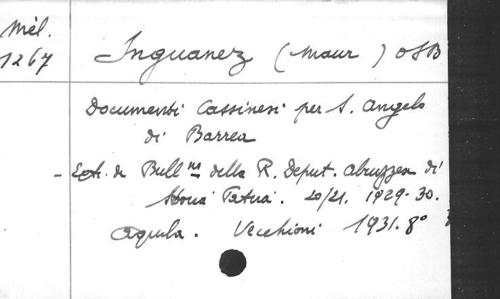 Mél.
1267
Inguanez (Maur) OSB
Documenti Cassinesi per S. Angelo
di Barrea
- Extr. de Bull ns della R. Deput. abruzzen di
Storia Patria. 20/21. 1929-30.
Aquila. Vecchioni 1931. 8°